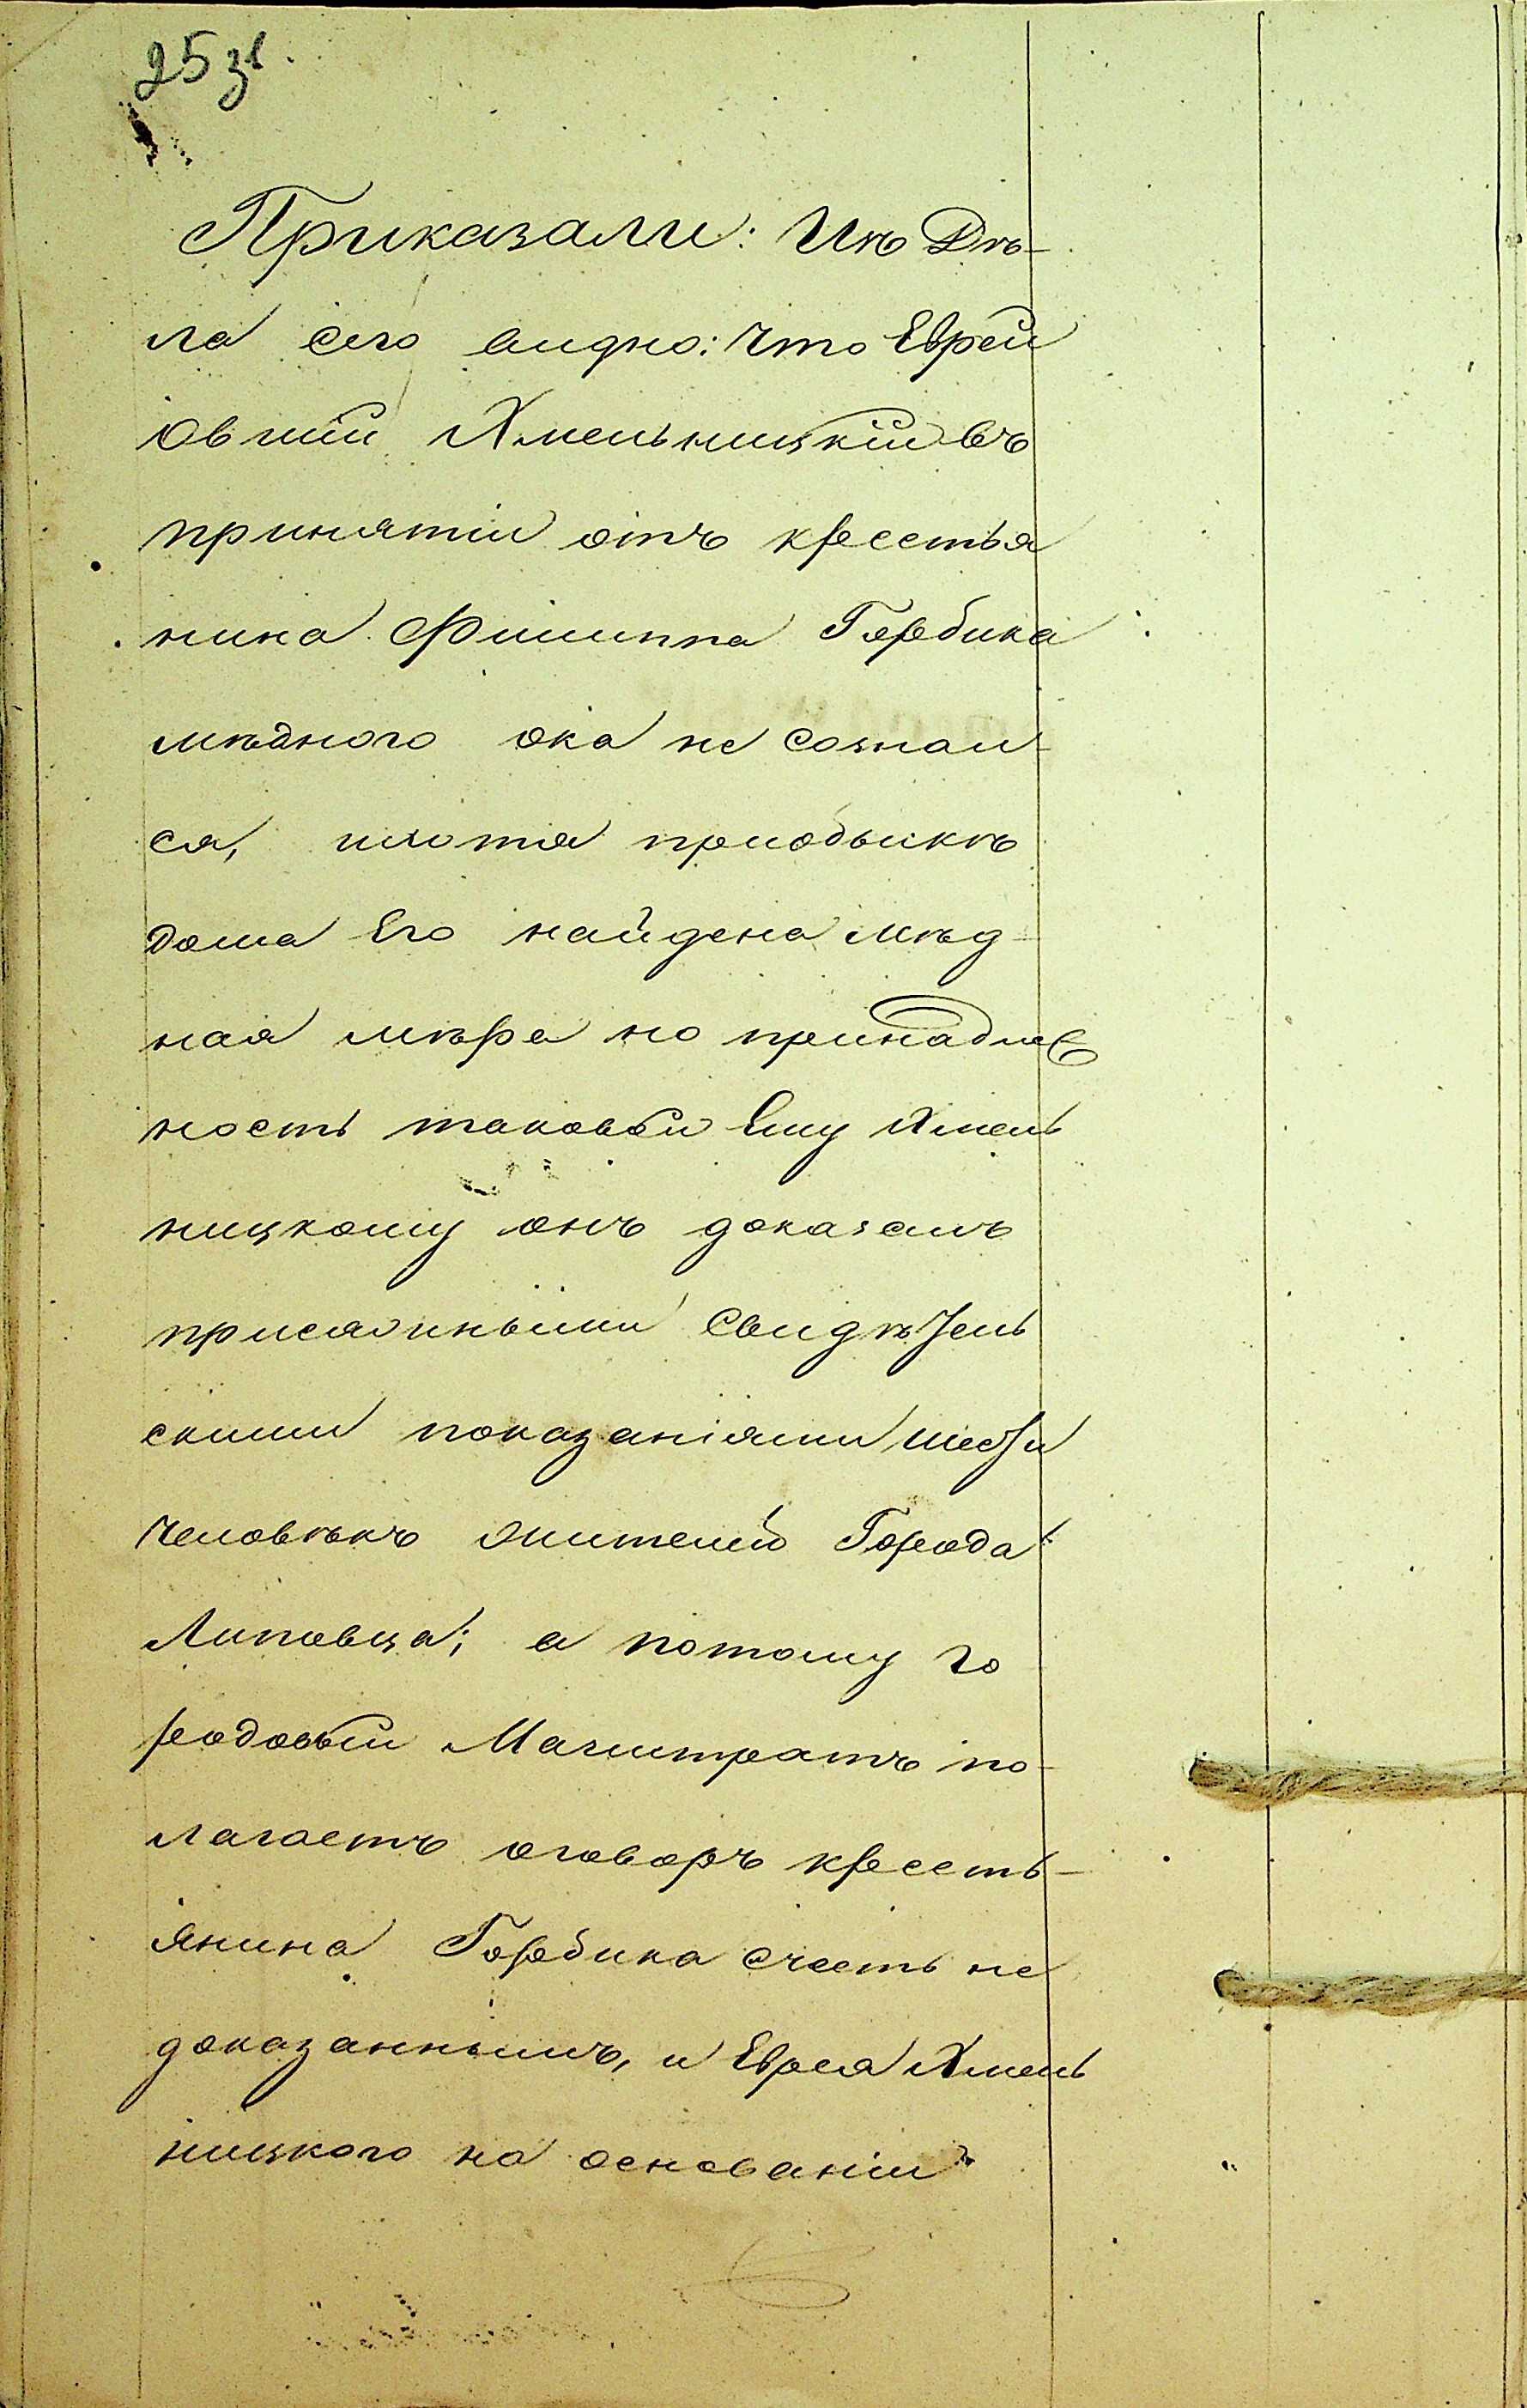 25 зв.
Приказали: Изъ Дѣ-
ла сего видно: что Еврей
Овшій Хмельницкій въ
принятіи отъ крестья
нина Филиппа Горбика
мѣднаго ока не сознал-
ся, и хотя при обыскѣ
дома Его найдена мѣд-
ная мѣра но принадлеж
ность таковой Ему Хмель
ницкому онъ доказалъ
присяжными Свидѣтель
скими показаніями шести
человѣкъ жителей Города
Липовца; а потому го
родовый Магистратъ по-
лагаетъ оговоръ кресть-
янина Горбика счесть не
доказаннымъ, и Еврея Хмель
ницкого на основаніи